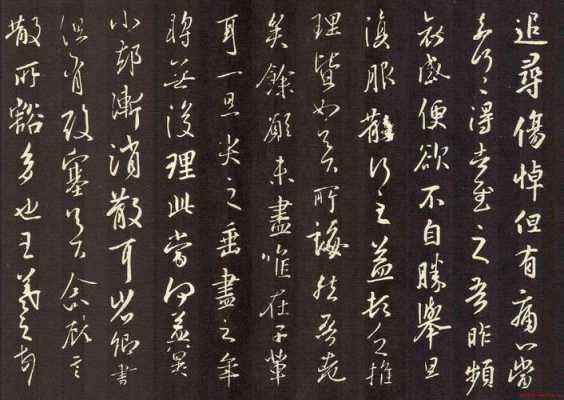 追尋傷悼但有痛心當
奈何々得告慰之吾昨頻
哀感便欲不自勝舉旦
復服散行之益頓乏推
理皆如足下所誨然吾老
矣餘願未盡唯在子輩
耳一旦哭之垂盡之年
將無復理此當何益冀
小郤漸消散耳省卿書
但有酸塞足下念故言
散所豁多也王羲之頓首